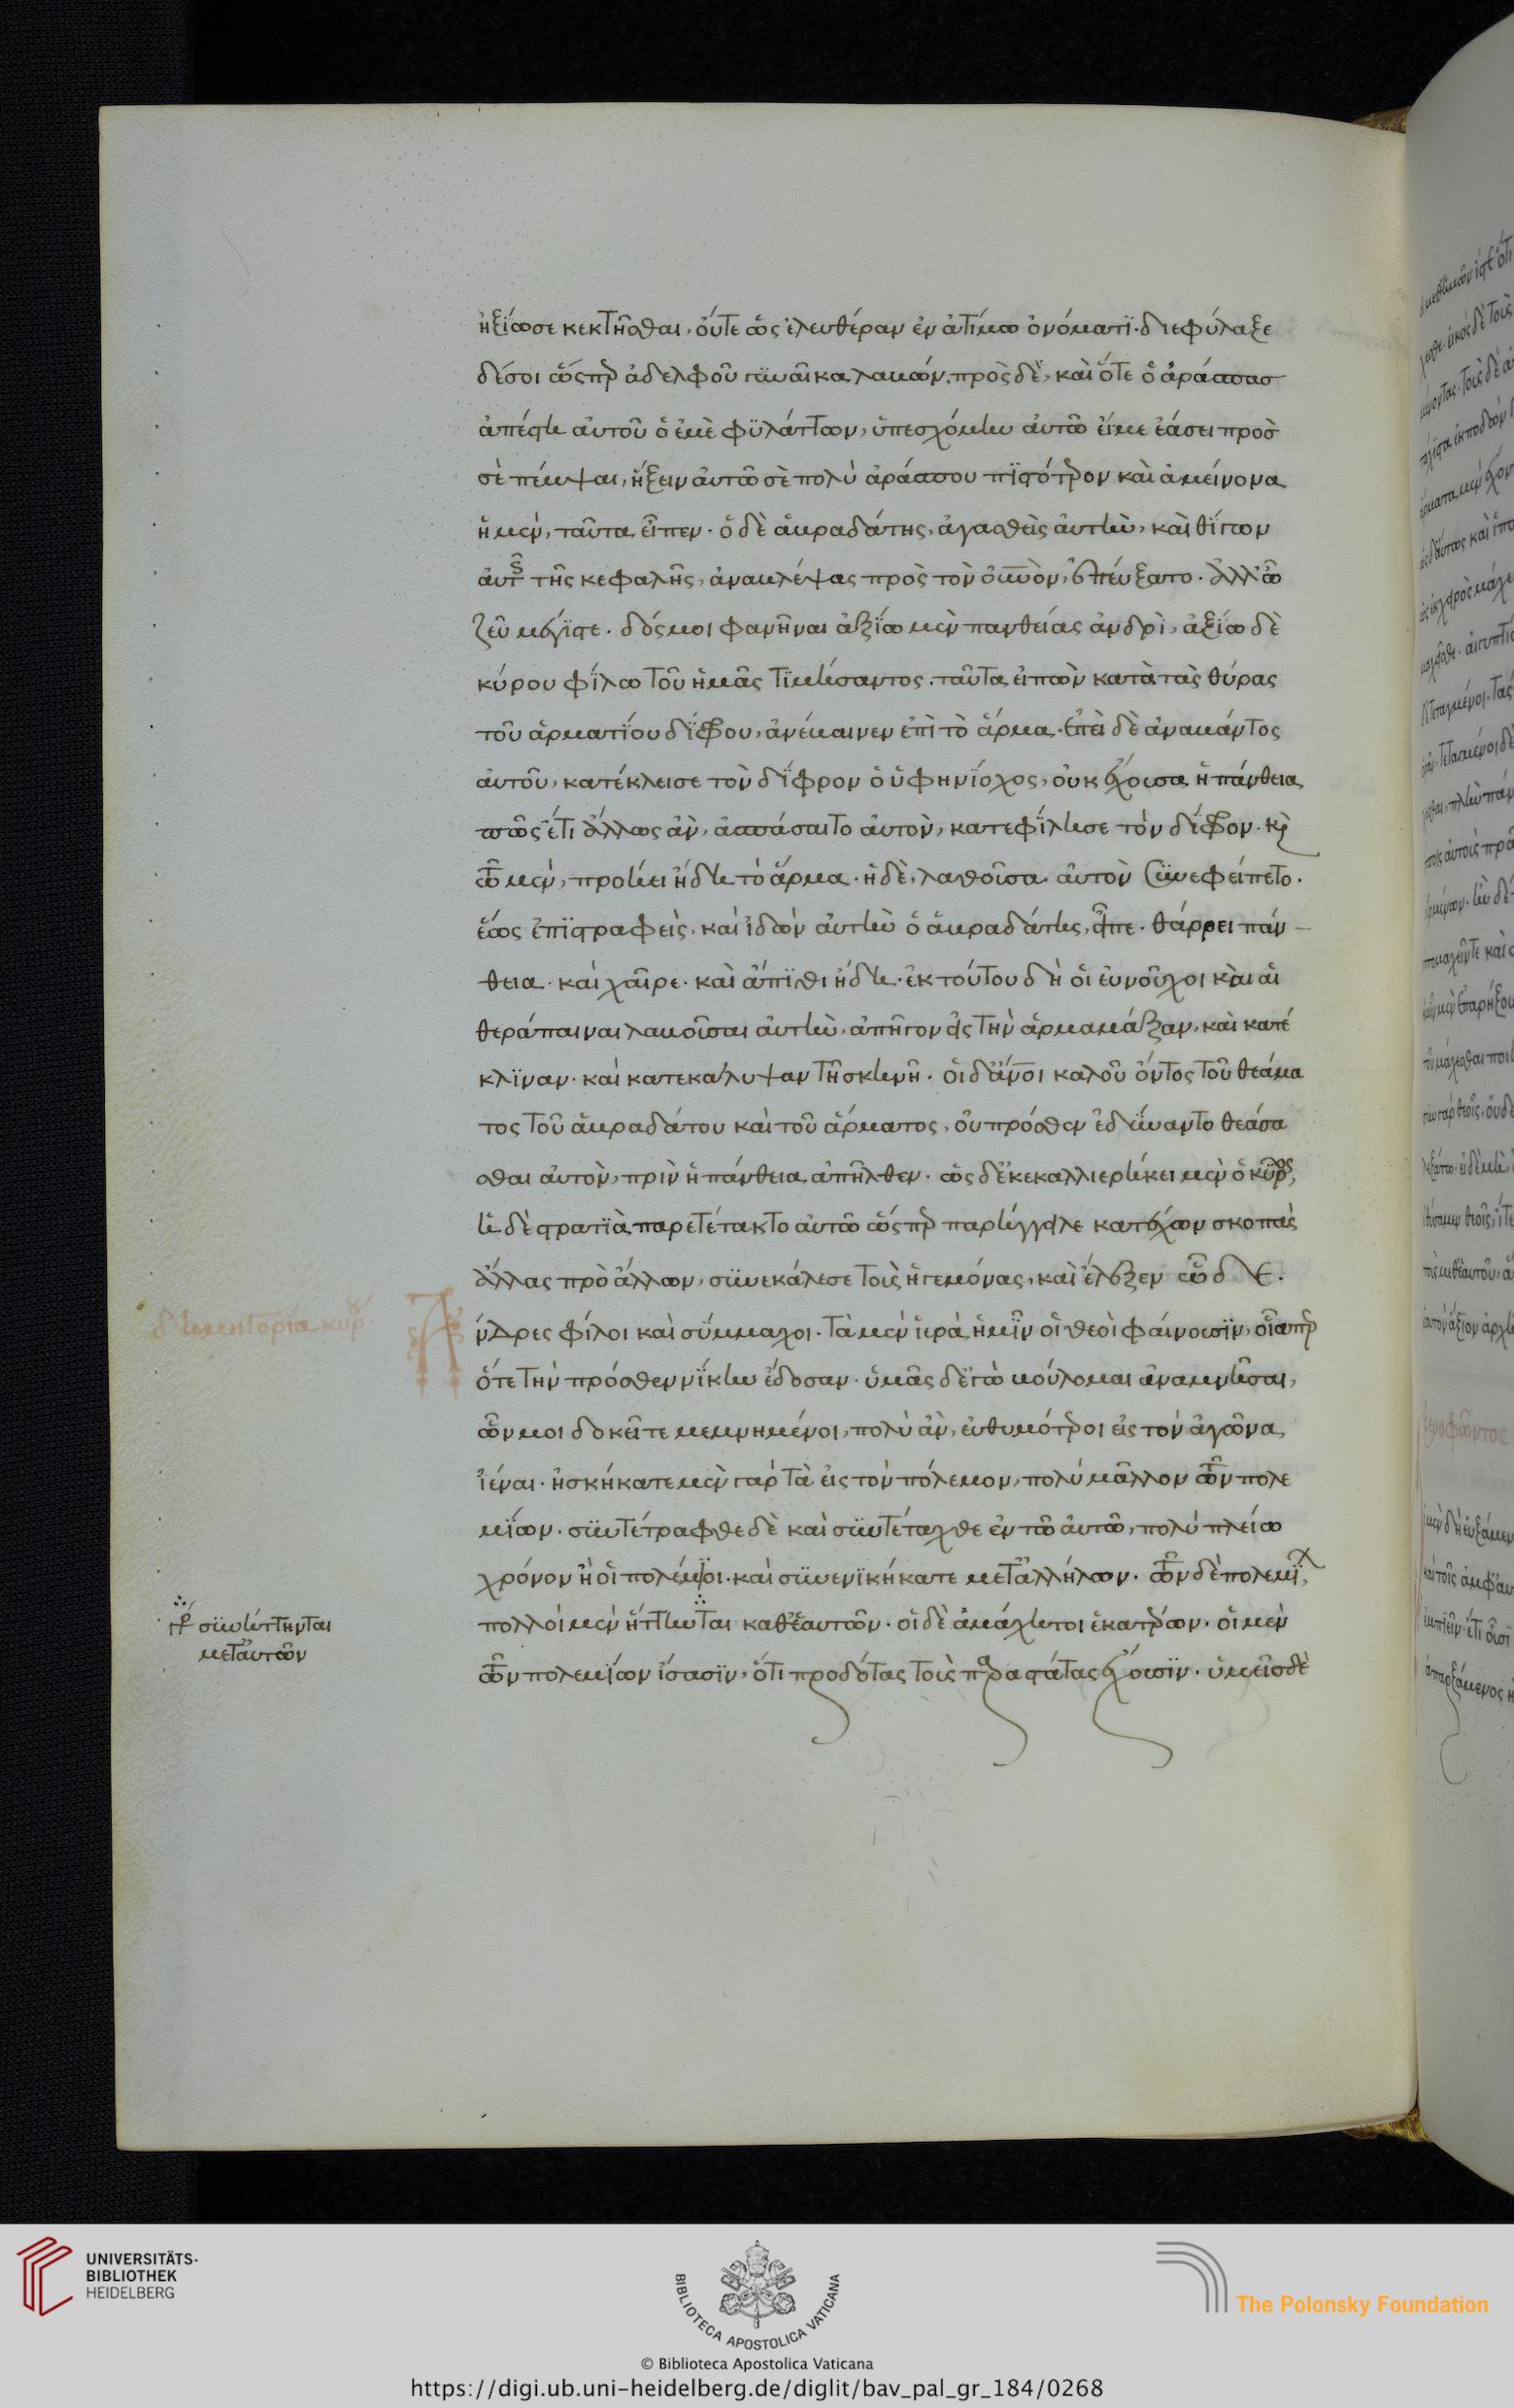 ἠξίωσε κεκτῆσθαι, οὔτε ὡς ἐλευθέραν ἐν ἀτίμω ὀνόματϊ· διεφύλαξε
δέ σοι ὥσπερ ἀδελφοῦ γυναῖκα λαβών. πρὸς δὲ, καὶ ὅτε ὁ ἀράσπας
ἀπέστη αὐτοῦ ὁ ἐμὲ φϋλάττων, ὑπεσχόμην αὐτῶ εἴ με ἐάσει πρὸς
σὲ πέμψαι, ἥξειν αὐτῶ σὲ πολὺ ἀράσπου πϊστότερον καὶ ἀμείνονα
ἡ μὲν, ταῦτα εἶπεν· ὁ δὲ ἀβραδάτης, ἀγασθεὶς αὐτὴν, καὶ θίγων
αὐτῆς τῆς κεφαλῆς, ἀναβλέψας πρὸς τὸν οὐνὸν, ἐπεύξατο. ἀλλ' ὦ
ζεῦ μέγϊστε· δός μοι φανῆναι ἀξίω μὲν πανθείας ἀνδρὶ, ἀξίω δὲ
κύρου φίλω τοῦ ἡμᾶς τϊμήσαντος. ταῦτα εἰπὼν κατὰ τὰς θύρας
τοῦ ἁρματίου δίφρου, ἀνέβαινεν ἐπὶ τὸ ἅρμα. ἐπεὶ δὲ ἀναβάντος
αὐτοῦ, κατέκλεισε τὸν δίφρον ὁ ὑφηνίοχος, οὐκ ἔχουσα ἡ πάνθεια
πῶς ἔτι ἄλλως ἂν, ἀσπάσαιτο αὐτὸν, κατεφίλησε τὸν δίφρον. καὶ
τῶ μὲν, προῄει ἤδη τὸ ἅρμα. ἡ δὲ, λαθοῦσα αὐτὸν συνεφείπετο.
ἕως ἐπϊστραφεὶς, καὶ ἰδὼν αὐτὴν ὁ ἀβραδάτης, εἶπε. θάρρει πάν-
θεια· καὶ χαῖρε· καὶ ἄπϊθι ἤδη. ἐκ τούτου δὴ οἱ εὐνοῦχοι καὶ αἱ
θεράπαιναι λαβοῦσαι αὐτὴν, ἀπῆγον εἰς τὴν ἁρμαμάξαν, καὶ κατέ
κλϊναν· καὶ κατεκάλυψαν τῆ σκηνῆ. οἱ δ' ἄνοι καλοῦ ὄντος τοῦ θεάμα
τος τοῦ ἀβραδάτου καὶ τοῦ ἅρματος, οὐ πρόσθεν ἐδύναντο θεάσα
σθαι αὐτὸν, πρὶν ἡ πάνθεια ἀπῆλθεν. ὡς δ' ἐκεκαλλιερήκει μὲν ὁ κῦρος,
ἡ δὲ στρατϊὰ παρετέτακτο αὐτῶ ὥσπερ παρήγγειλε κατέχων σκοπὰς
ἄλλας πρὸ ἄλλων, συνεκάλεσε τοὺς ἡγεμόνας, καὶ ἔλεξεν ὧδε.
δημηγορία κύρου
Ἄνδρες φίλοι καὶ σύμμαχοι. τὰ μὲν ἱερὰ ἡμῖν οἱ θεοὶ φαίνουσϊν, οἷάπερ
ὅτε τὴν πρόσθεν νίκην ἔδοσαν. ὑμᾶς δ' ἐγὼ βούλομαι ἀναμνῆσαι,
ὧν μοι δοκεῖτε μεμνημένοι, πολὺ ἂν, εὐθυμότεροι εἰς τὸν ἀγῶνα
ἰέναι. ἠσκήκατε μὲν γὰρ τὰ εἰς τὸν πόλεμον, πολὺ μᾶλλον τῶν πολε
μίων. συντέτραφθε δὲ καὶ συντέταχθε ἐν τῶ αὐτῶ, πολὺ πλείω
χρόνον ἢ οἱ πολέμϊοι. καὶ συνενϊκήκατε μετ' ἀλλήλων. τῶν δὲ πολεμΐων,
πολλοὶ μὲν ἥττηνται καθ' ἑαυτῶν. οἱ δὲ ἀμάχητοι ἑκατέρων. οἱ μὲν
γρ συνήττηνται
μετ' αὐτῶν
τῶν πολεμίων ἴσασϊν, ὅτι προδότας τοὺς παραστάτας ἔχουσϊν. ὑμεῖς δὲ
UNIVERSITÄTS-
BIBLIOTHEK
HEIDELBERG
BIBLIOTECA APOSTOLICA VATICANA
The Polonsky Foundation
© Biblioteca Apostolica Vaticana
https://digi.ub.uni-heidelberg.de/diglit/bav_pal_gr_184/0268